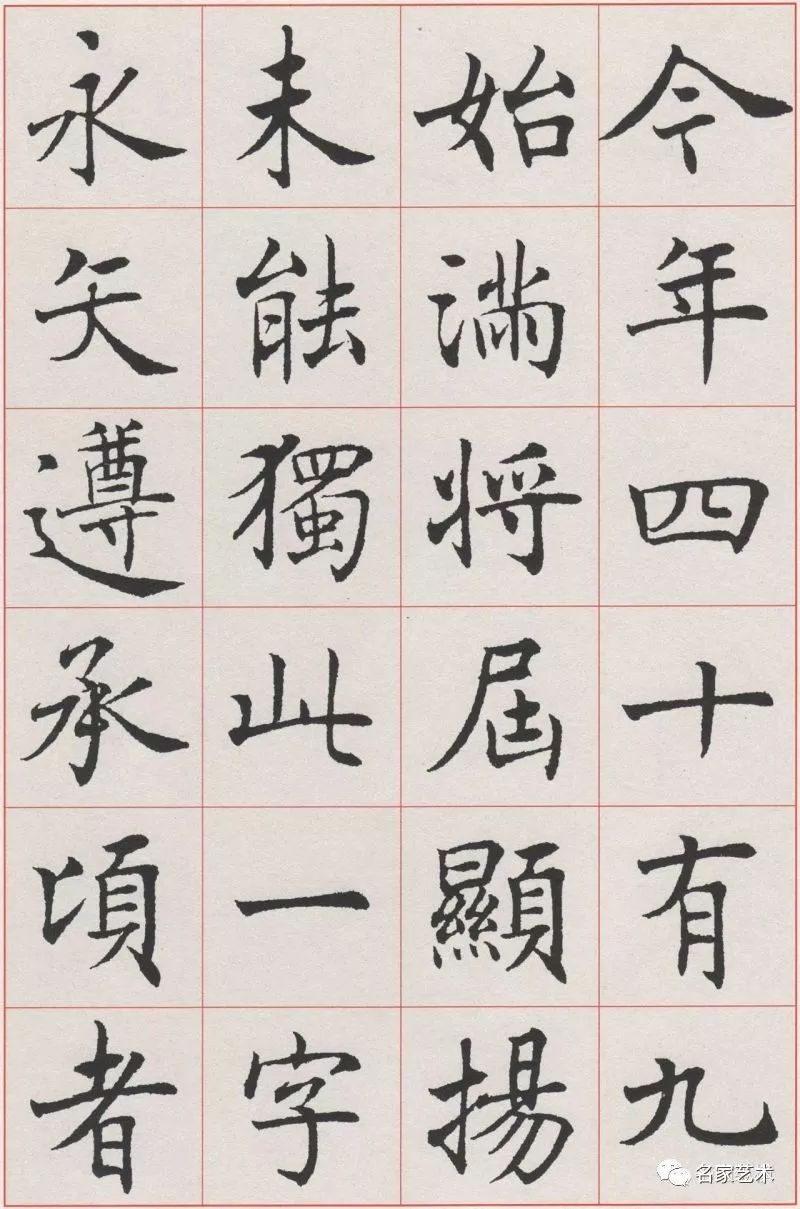 今年四十有九
始滿將屆顯揚
未能獨此一字
永矢遵承頃者
名家艺术